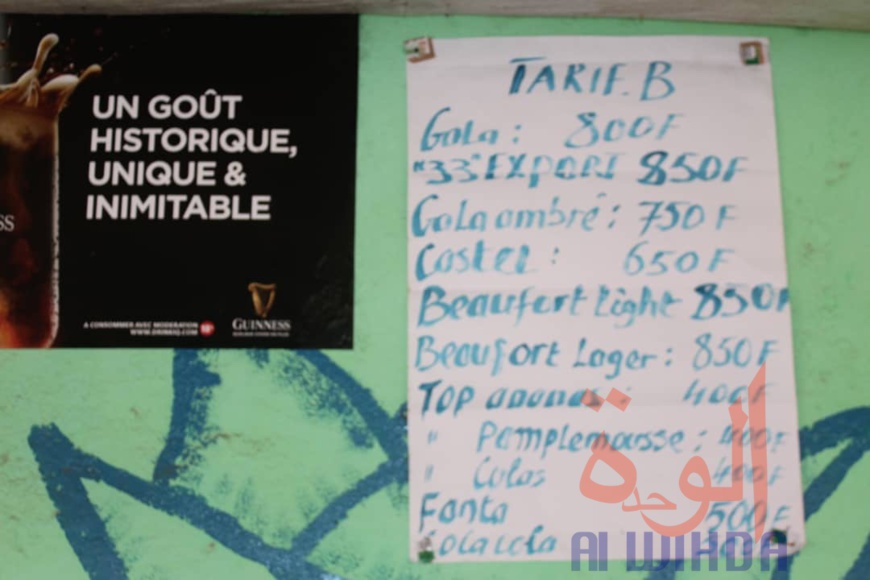 UN GOÛT
HISTORIQUE,
UNIQUE &
INIMITABLE
A CONSOMMER AVEC MODERATION
WWW.DRINKIQ.COM
18+
GUINNESS
SS
TARIF.B
Gala : 800F
"33" EXPORT 850F
Gala ambré : 750 F
Castel : 650 F
Beaufort light 850F
Beaufort Lager : 850F
TOP ananas : 400F
" Pamplemousse : 400F
" Colas 400F
Fanta 500F
Cola cola
الوحدة
Al WIHDA